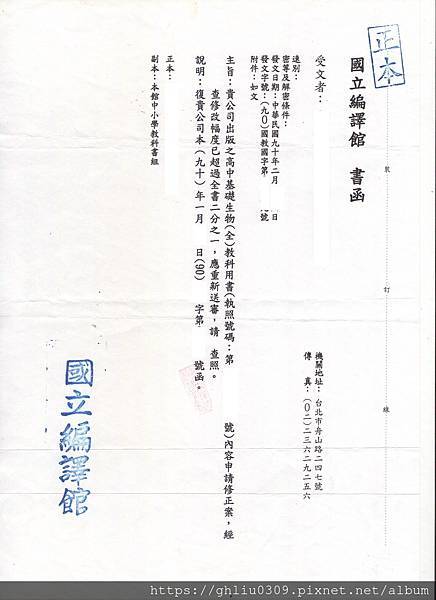 正本
國立編譯館　書函
機關地址：台北市舟山路二四七號
傳　真：（０二）二三六二九二五六
受文者：
速別：
密等及解密條件：
發文日期：中華民國九十年二月　日
發文字號：（九０）國教國字第　號
附件：如文
主旨：貴公司出版之高中基礎生物(全)教科用書(執照號碼：第　號)內容申請修正案，經
查修改幅度已超過全書二分之一，應重新送審，請　查照。
說明：復貴公司本（九十）年一月　日(90)　字第　號函。
正本：
副本：本館中小學教科書組
國立編譯館
裝
訂
線
https://ghliu0309.pixnet.net/album